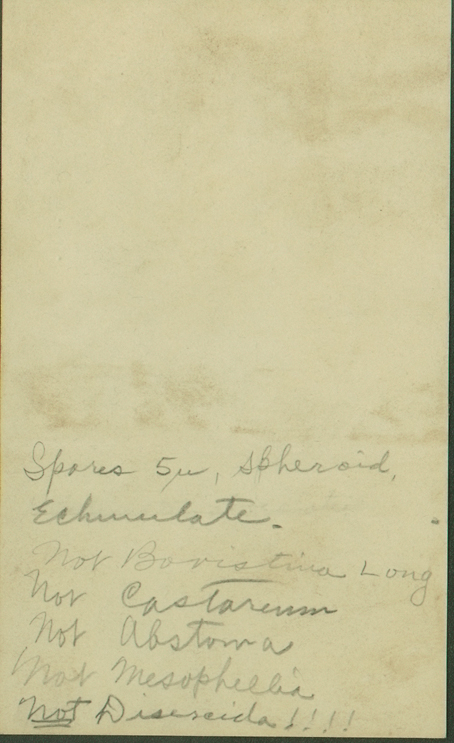 Spores 5µ, spheroid,
Echinulate.
Not Bovistina Long
Not Castareum
Not Abstoma
Not Mesophellia
Not Diseiscida!!!!